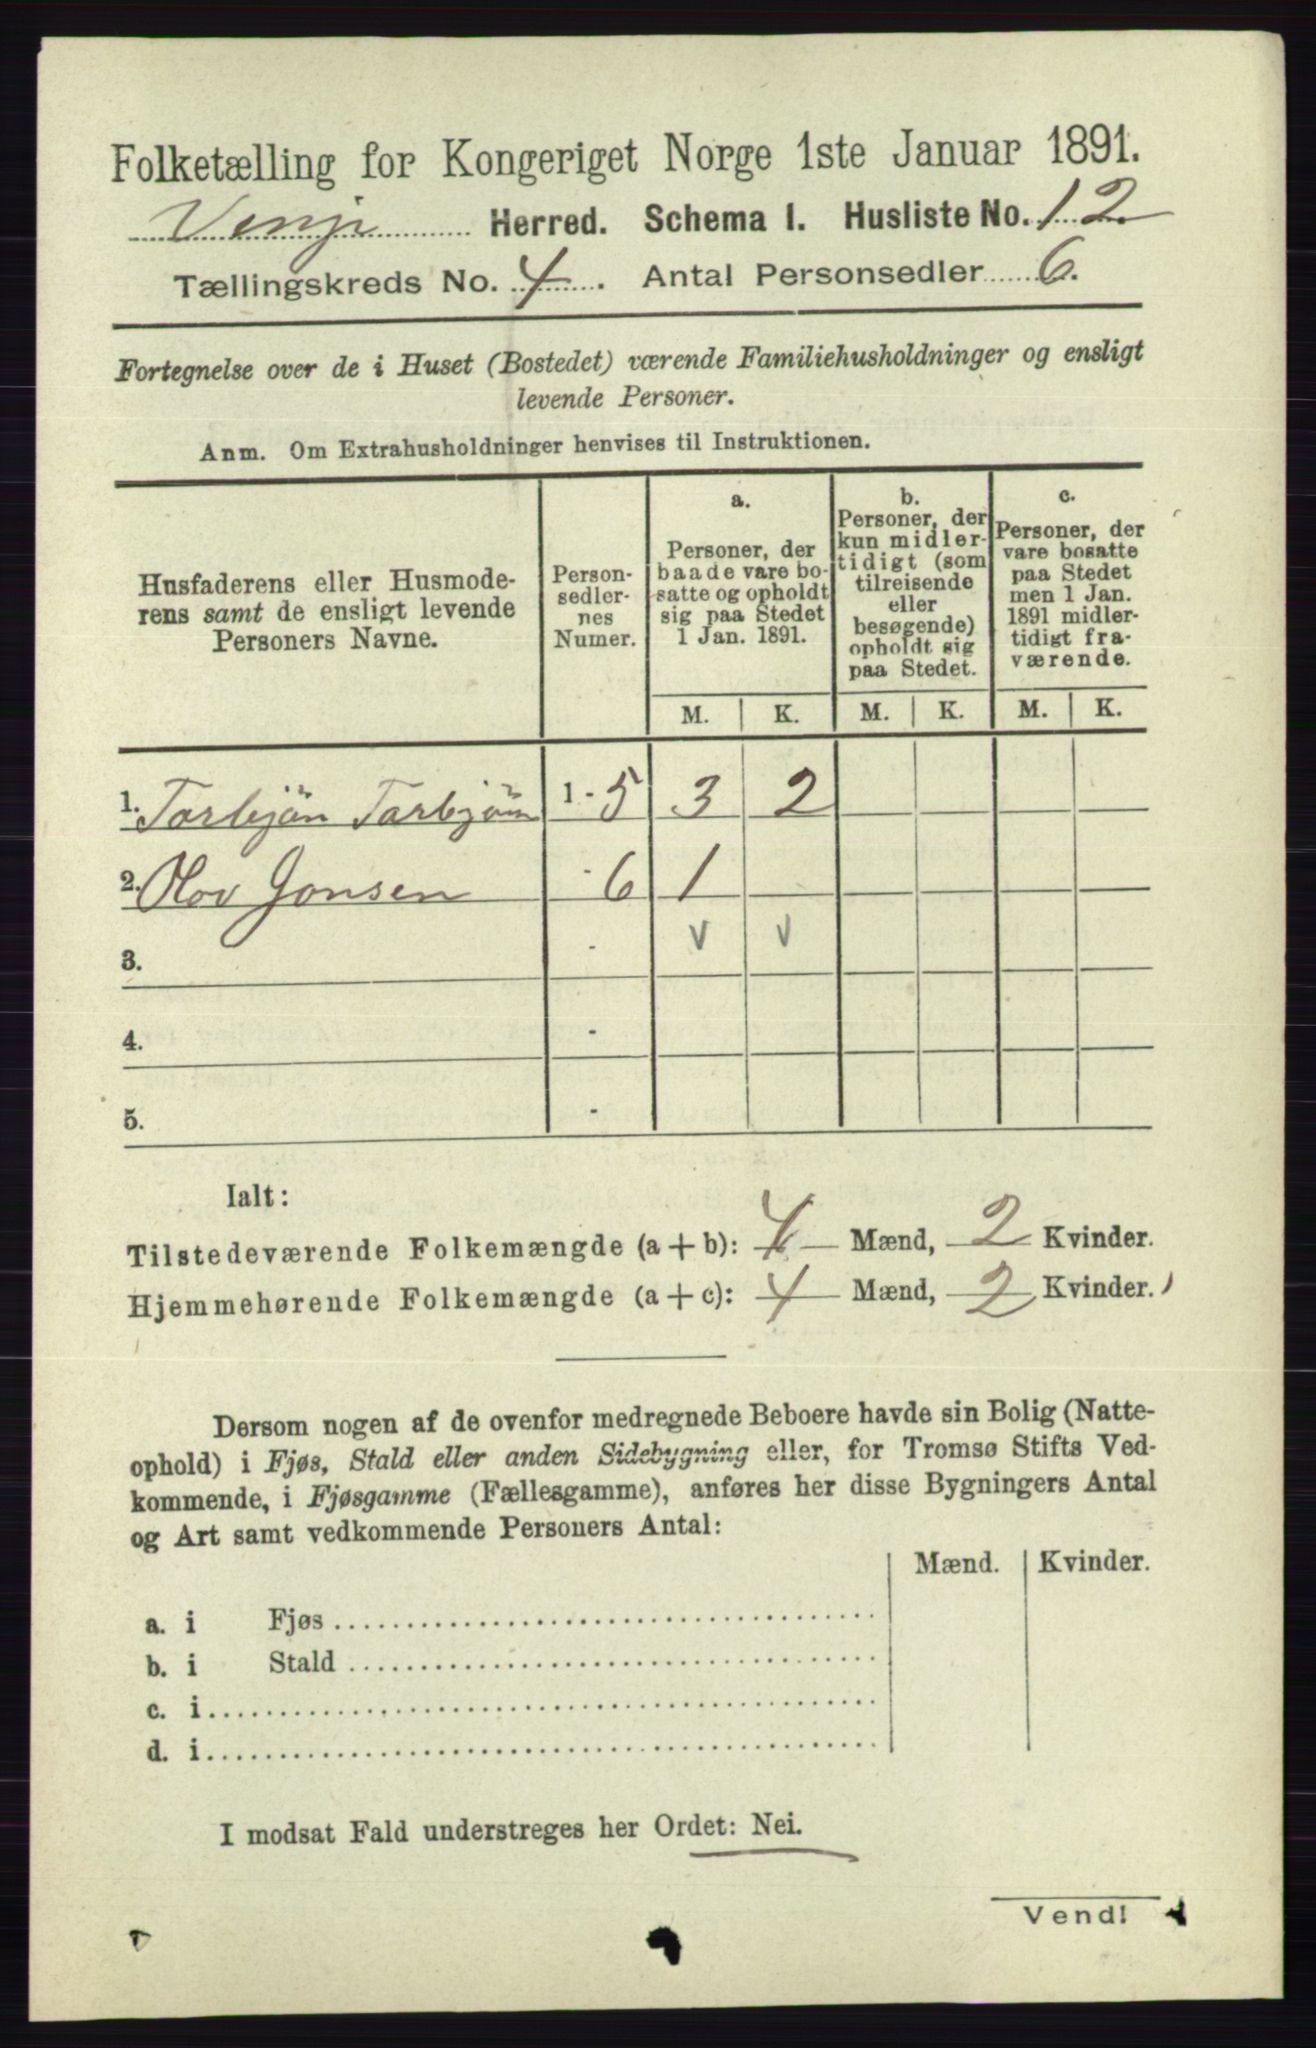 Folketælling for Kongeriget Norge 1ste Januar 1891.
Vinje Herred. Schema I. Husliste No. 12
Tællingskreds No. 4. Antal Personsedler 6.
Fortegnelse over de i Huset (Bostedet) værende Familiehusholdninger og ensligt
levende Personer.
Anm. Om Extrahusholdninger henvises til Instruktionen.
Husfaderens eller Husmode-
rens samt de ensligt levende
Personers Navne.
Person-
sedler-
nes
Numer.
a.
Personer, der
baade vare bo-
satte og opholdt
sig paa Stedet
1 Jan. 1891.
b.
Personer, der
kun midler-
tidigt (som
tilreisende
eller
besøgende)
opholdt sig
paa Stedet.
c.
Personer, der
vare bosatte
paa Stedet
men 1 Jan.
1891 midler-
tidigt fra-
værende.
M. K. M. K. M. K.
1. Torbjön Torbjöns 1 - 5 3 2
2. Olov Jonsen - 6 1
3. - v v
4. -
5. -
Ialt:
Tilstedeværende Folkemængde (a + b): 4 Mænd, 2 Kvinder.
Hjemmehørende Folkemængde (a + c): 4 Mænd, 2 Kvinder.
Dersom nogen af de ovenfor medregnede Beboere havde sin Bolig (Natte-
ophold) i Fjøs, Stald eller anden Sidebygning eller, for Tromsø Stifts Ved-
kommende, i Fjøsgamme (Fællesgamme), anføres her disse Bygningers Antal
og Art samt vedkommende Personers Antal:
Mænd. Kvinder.
a. i Fjøs
b. i Stald
c. i
d. i
I modsat Fald understreges her Ordet: Nei.
Vend!